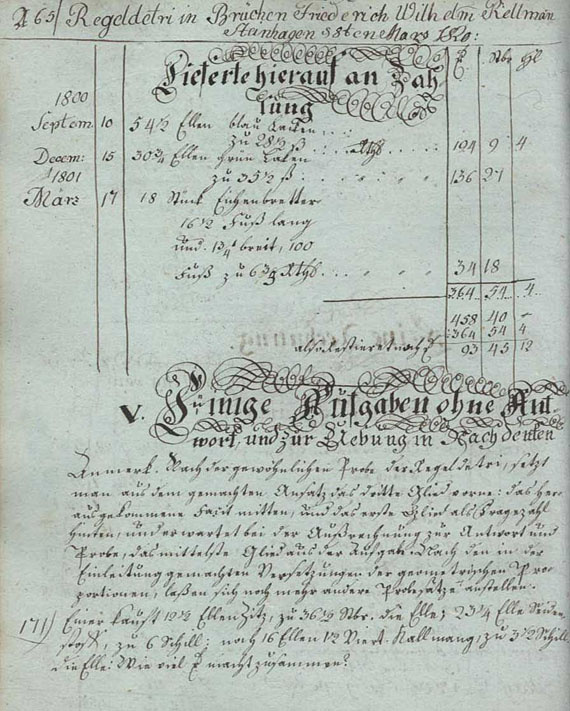 265/ Regeldetri in Brüchen Friederich Wilhelm Kellman
Stavnhagen 8ten März 1840:
Lieferte hierauf an Zah- ₰ Stbr ₰
lung
1800
Septem. 10 54 1/2 Ellen blau Laken
zu 28 1/2 ß Rthl 194 9 4
Decem: 15 30 3/4 Ellen Grün Laken
1801 zu 35 1/2 ß 136 27
März 17 18 Stück Eichenbretter
16 1/2 Fuß lang
und 1 3/4 breit, 100
Fuß zu 6 3/4 Rthl 34 18
364 54 4
458 40 -
364 54 4
also restieret noch 93 45 12
V. Einige Aufgaben ohne Ant-
wort, und zur Uebung im Nachdenken
Anmerk. Nach der gewöhnlichen Probe der Regeldetri, setzt
man aus dem gemachten Ansatz das dritte Glied vorne: das her
ausgekommene Facit mitten, und das erste Glied als Fragezahl
hinten, und erwartet bei der Außrechnung zur Antwort und
Probe, das mittelste Glied aus der Aufgabe. Nach den in der
Einleitung gemachten Versetzungen der geometrischen Pro-
portionen, laßen sich noch mehr andere Probesätze anstellen.
171) Einer kauft 19 1/2 Ellen Zitz, zu 36 1/2 Stbr. die Elle; 23 3/4 Elle Seiden-
stoff, zu 6 Schill; noch 16 Ellen 1 1/2 Viert. Kallmang, zu 3 1/2 Schill
die Elle: Wie viel macht zusammen?